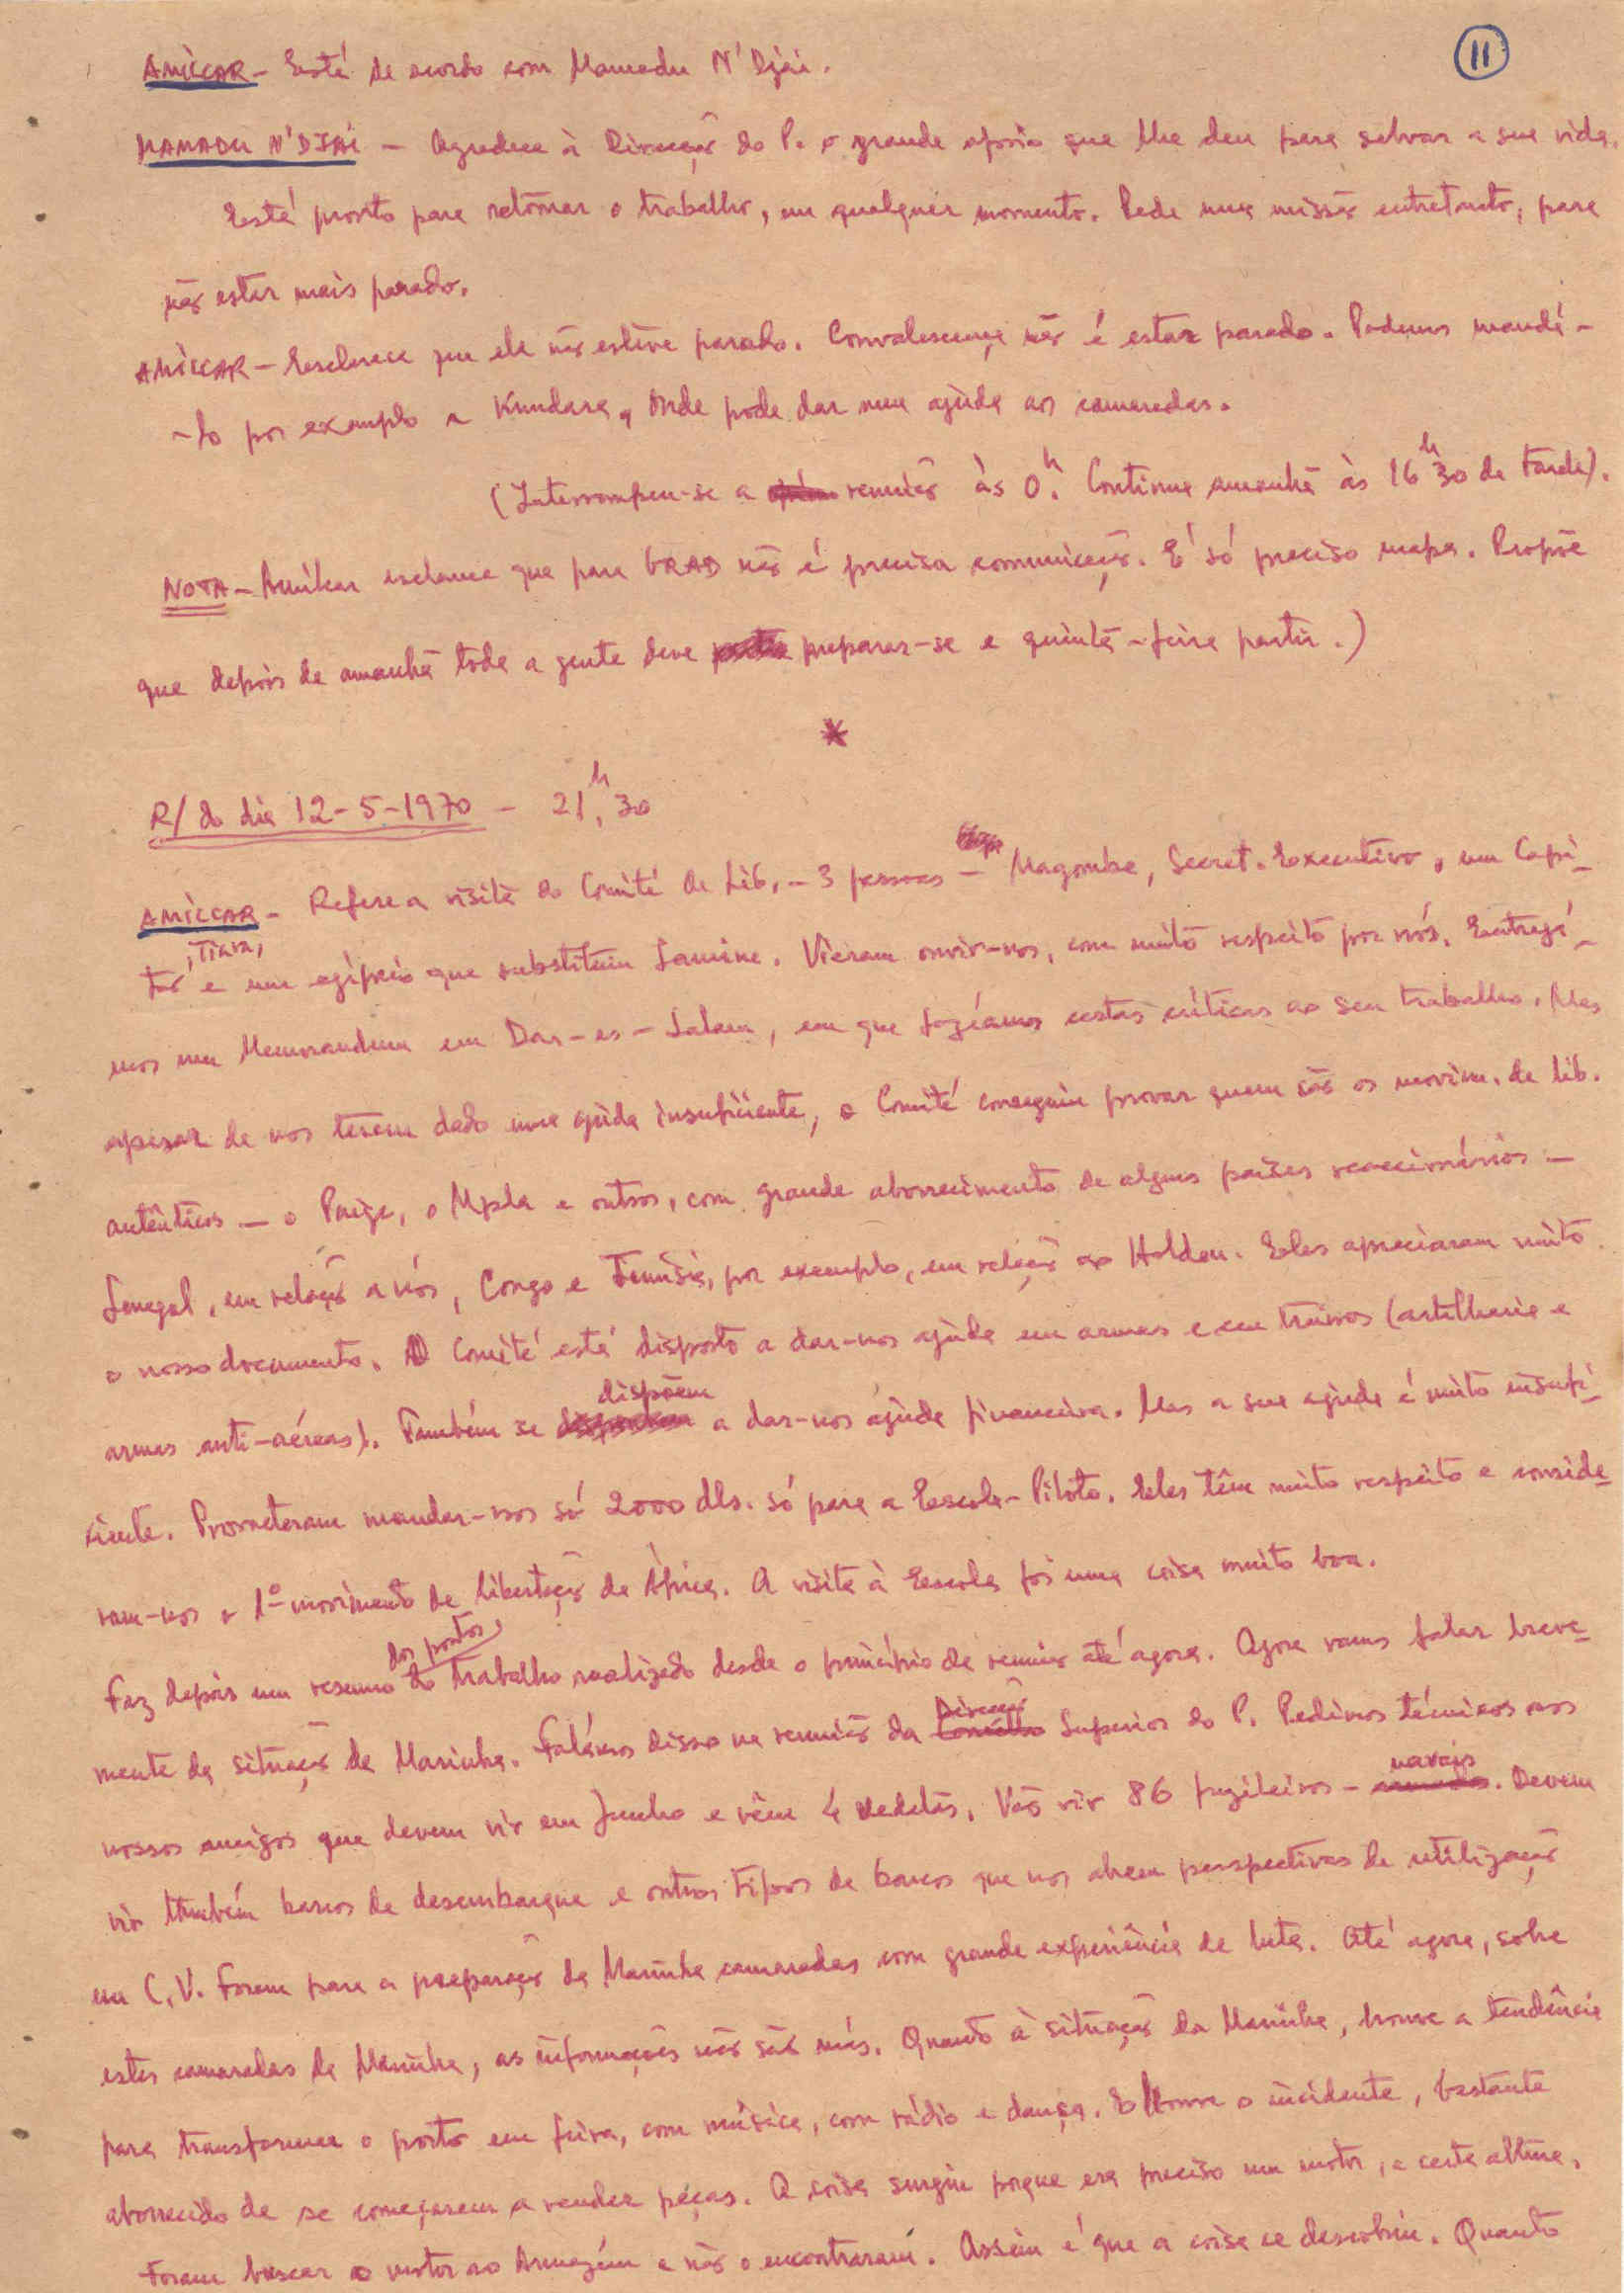 11
AMÍLCAR - Está de acordo com Mamadu N'Djai.
MAMADU N'DJAI - Agradece à Direcção do P. o grande apoio que lhe deu para salvar a sua vida.
Está pronto para retomar o trabalho, em qualquer momento. Pede uma missão entretanto, para
não estar mais parado.
AMÍLCAR - Esclarece que ele não esteve parado. Convalescença não é estar parado. Podemos mandá-
-lo por exemplo a Kundara, onde pode dar uma ajuda aos camaradas.
(Interrompeu-se a reunião às 0h. Continua amanhã às 16h30 da tarde).
NOTA - Amílcar esclarece que para GRAD não é precisa comunicação. É só preciso mapa. Propõe
que depois de amanhã toda a gente deve preparar-se e quinta-feira partir.)
*
R/ do dia 12-5-1970 - 21h,30
AMÍLCAR - Refere a visita do Comité de Lib. - 3 pessoas - Magombe, Secret. Executivo, um Capi-
tão, e um egípcio que substituiu Lamine. Vieram ouvir-nos, com muito respeito por nós. Entregá-
mos um Memorandum em Dar-es-Salam, em que fazíamos certas críticas ao seu trabalho. Mas
apesar de nos terem dado uma ajuda insuficiente, o Comité conseguiu provar quem são os movim. de lib.
autênticos - o Paigc, o Mpla e outros, com grande aborrecimento de alguns países reaccionários -
Senegal, em relação a nós, Congo e Tunísia, por exemplo, em relação ao Holden. Eles apreciaram muito
o nosso documento. O Comité está disposto a dar-nos ajuda em armas e em treinos (artilharia e
armas anti-aéreas). Também se dispõem a dar-nos ajuda financeira. Mas a sua ajuda é muito insufi-
ciente. Prometeram mandar-nos só 2000 dls. só para a Escola-Piloto. Eles têm muito respeito e conside-
ram-nos o 1º movimento de libertação de África. A visita à Escola foi uma coisa muito boa.
Faz depois um resumo dos pontos do trabalho realizado desde o princípio da reunião até agora. Agora vamos falar breve-
mente da situação da Marinha. Falámos disso na reunião da Direcção Superior do P. Pedimos técnicos aos
nossos amigos que devem vir em Junho e vêm 4 vedetas. Vão vir 86 fuzileiros - navais. Devem
vir também barcos de desembarque e outros tipos de barcos que nos abrem perspectivas de utilização
em C.V. Foram para a preparação da Marinha camaradas com grande experiência de luta. Até agora, sobre
estes camaradas da Marinha, as informações não são más. Quanto à situação da Marinha, houve a tendência
para transformar o porto em feira, com música, com rádio e dança. E houve o incidente, bastante
aborrecido de se começarem a vender peças. A coisa surgiu porque era preciso um motor, a certa altura.
Foram buscar o motor ao Armazém e não o encontraram. Assim é que a coisa se descobriu. Quanto